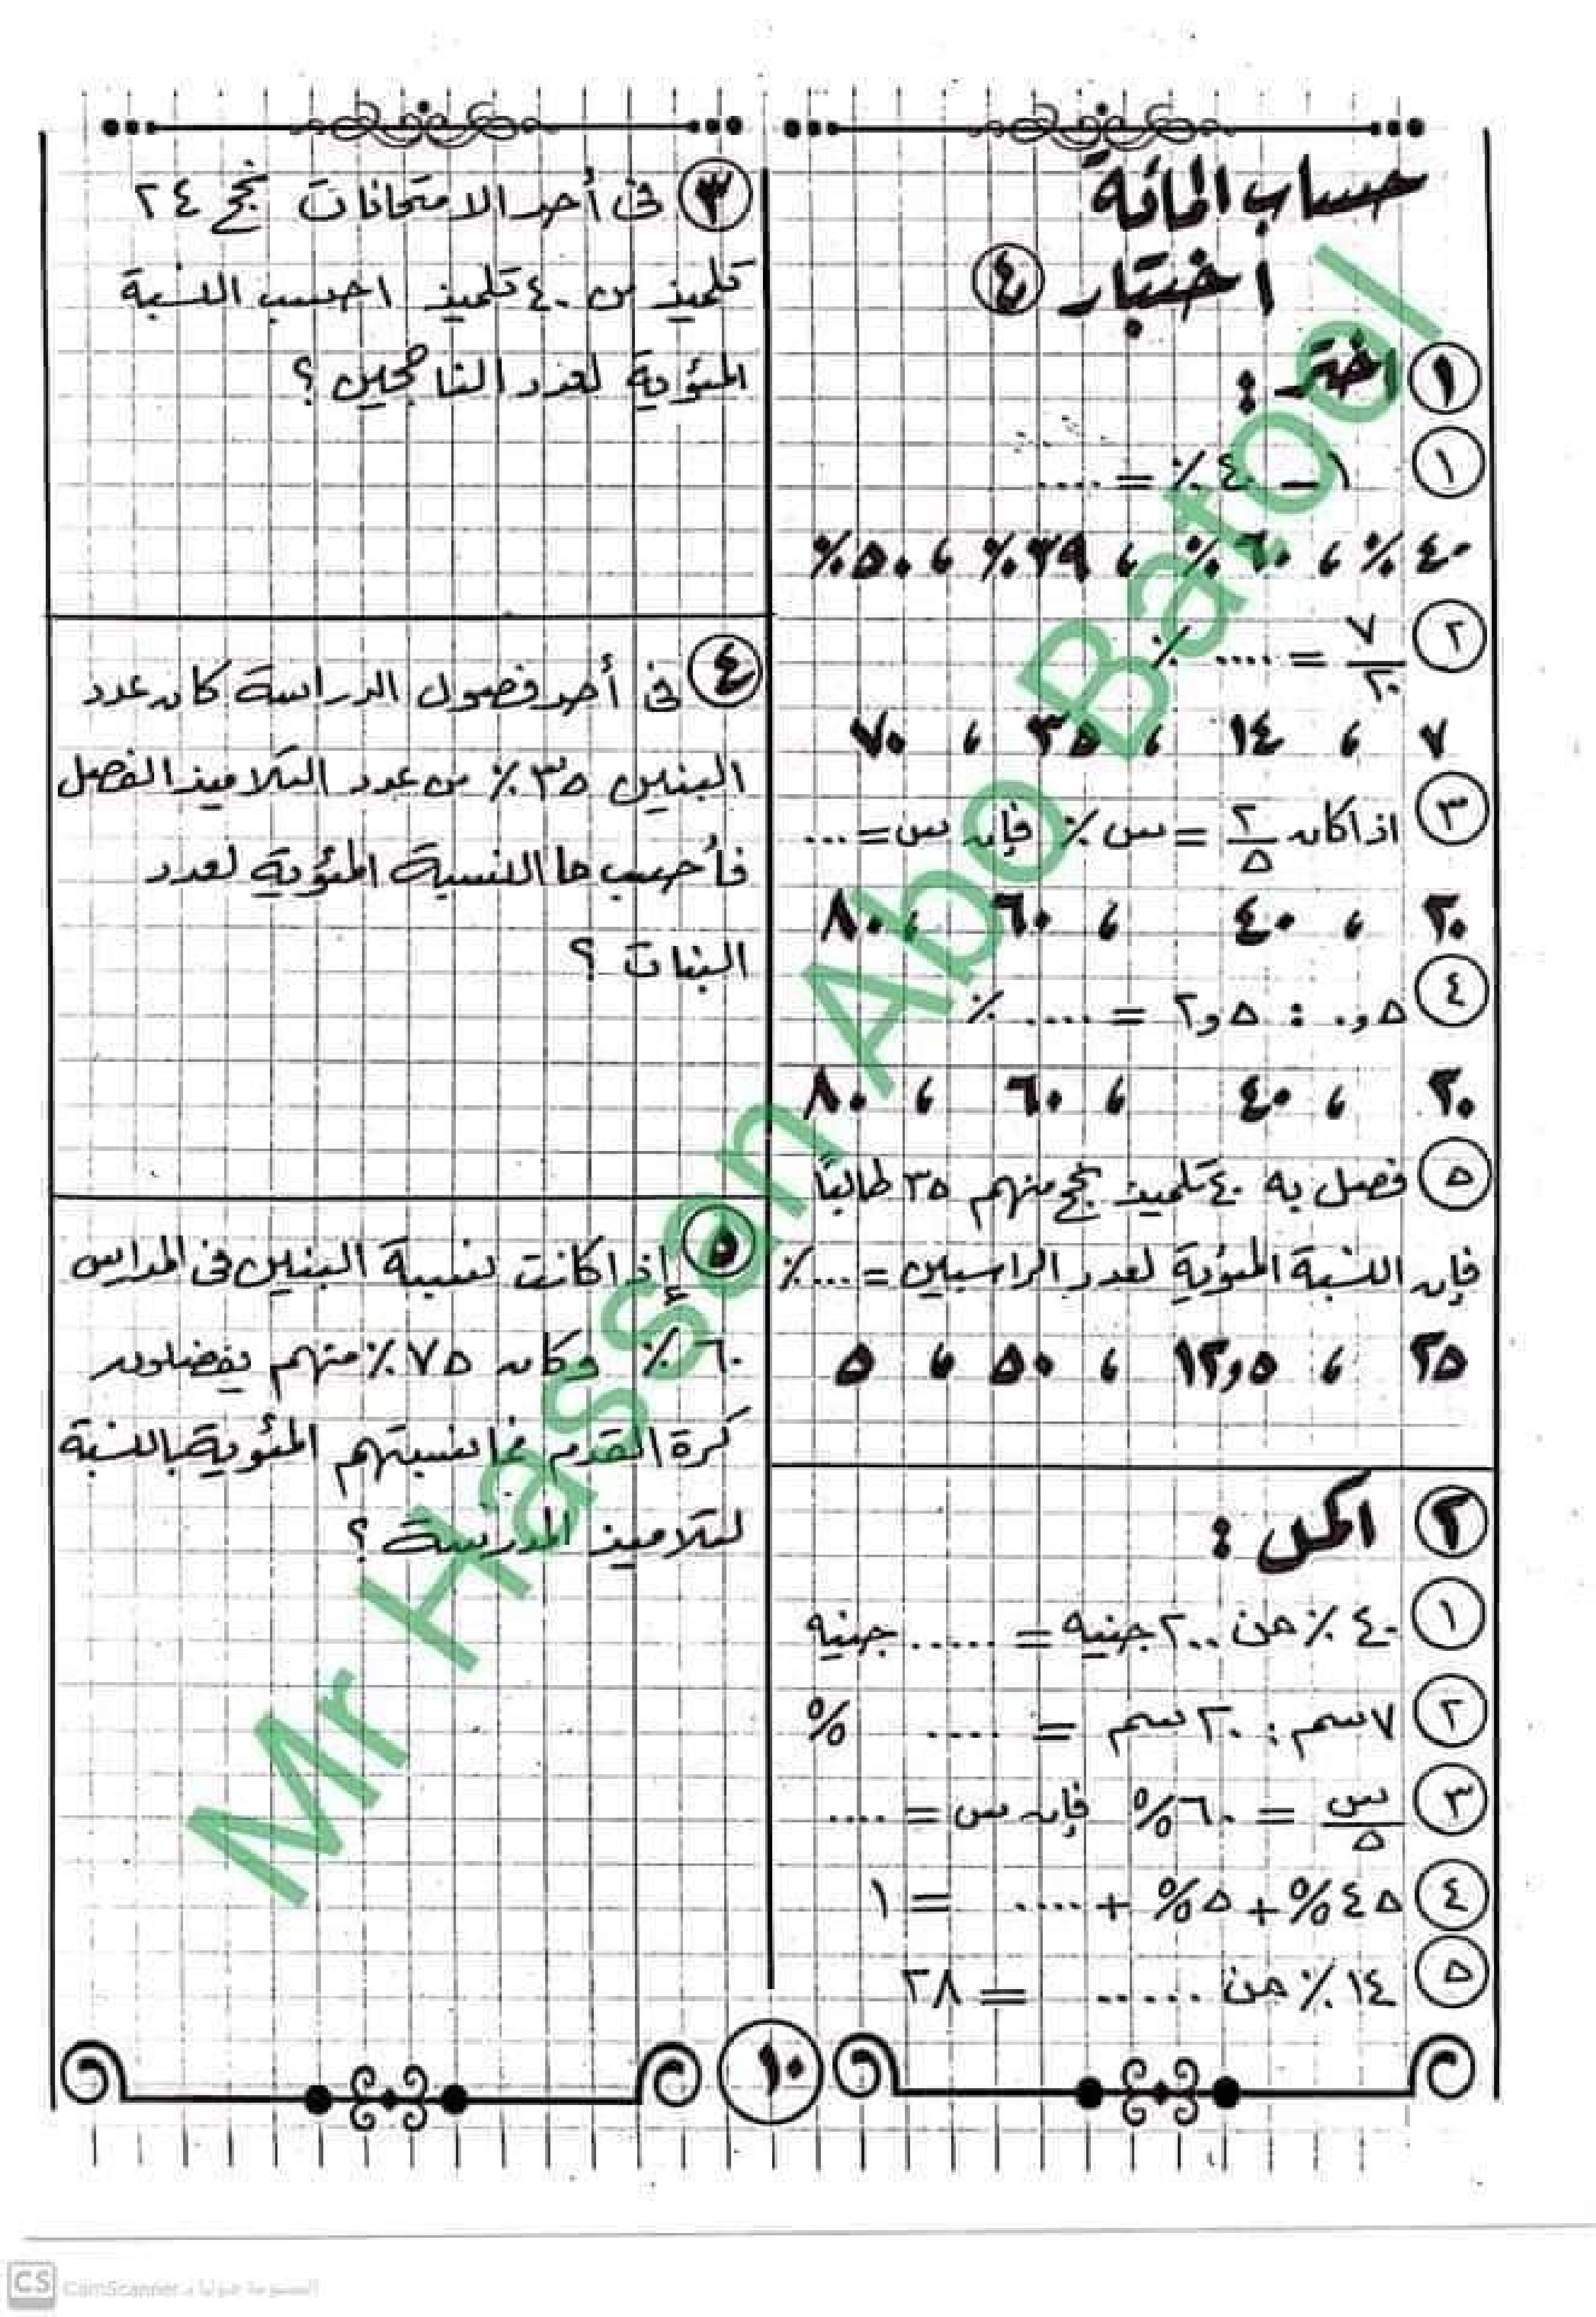 حساب المائة
اختبار ٤
١ اختر :
١ ١ – ٤٠٪ = ....
٤٠٪ ، ٦٠٪ ، ٣٩٪ ، ٥٠٪
٢ ٧/٢٠ = .... ٪
٧ ، ١٤ ، ٣٥ ، ٧٠
٣ اذا كان ٢/٥ = س٪ فإن س = ...
٢٠ ، ٤٠ ، ٦٠ ، ٨٠
٤ ٠,٥ : ٢,٥ = .... ٪
٢٠ ، ٤٠ ، ٦٠ ، ٨٠
٥ فصل به ٤٠ تلميذ نجح منهم ٣٥ طالباً
فإن النسبة المئوية لعدد الراسبين = ....٪
٢٥ ، ١٢,٥ ، ٥٠ ، ٥
٢ اكمل :
١ ٤٠٪ من ٢٠٠ جنيه = ..... جنيه
٢ ٧ سم : ٢٠ سم = .... %
٣ س/٥ = ٦٠% فإن س = ....
٤ ٤٥% + ٥% + .... = ١
٥ ١٤٪ من ..... = ٢٨
٣ فى أحد الامتحانات نجح ٢٤
تلميذ من ٤٠ تلميذ احسب النسبة
المئوية لعدد الناجحين ؟
٤ فى أحد فصول الدراسة كان عدد
البنين ٣٥٪ من عدد التلاميذ الفصل
فأحسب ما النسبة المئوية لعدد
البنات ؟
٥ إذا كانت نسبة البنين فى المدارس
٦٠٪ وكان ٧٥٪ منهم يفضلون
كرة القدم فما نسبتهم المئوية بالنسبة
لتلاميذ المدرسة ؟
١٠
Mr Hassan Abo Batool
CS CamScanner الممسوحة ضوئيا بـ